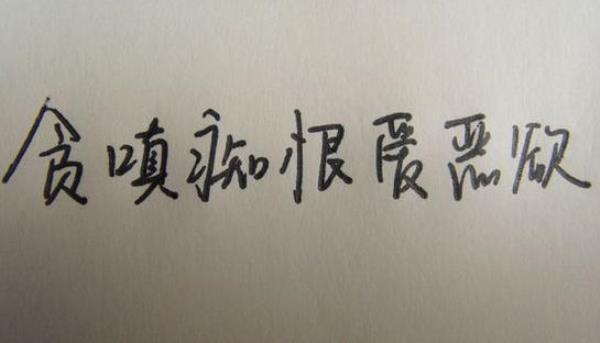 贪嗔痴恨爱恶欲